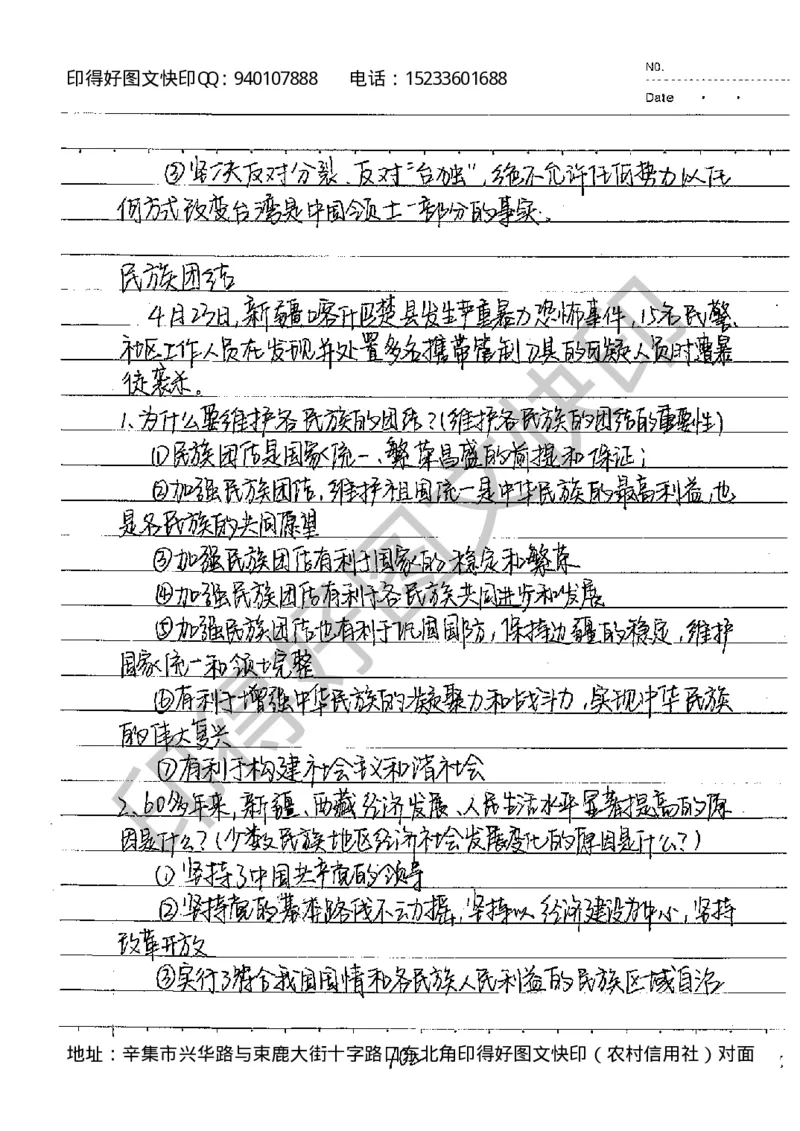 印得好图文快印QQ：940107888 电话：15233601688
NO.
Date
③坚决反对分裂、反对“台独”，绝不允许任何势力以任
何方式改变台湾是中国领土一部分的事实。
民族团结
4月23日，新疆喀什巴楚县发生严重暴力恐怖事件，15名民警、
社区工作人员在发现并处置多名携带管制刀具的可疑人员时遭暴
徒袭杀。
1、为什么要维护各民族的团结？（维护各民族的团结的重要性）
①民族团结是国家统一、繁荣昌盛的前提和保证；
②加强民族团结，维护祖国统一是中华民族的最高利益，也
是各民族的共同愿望
③加强民族团结有利于国家的稳定和繁荣
④加强民族团结有利于各民族共同进步和发展
⑤加强民族团结也有利于巩固国防，保持边疆的稳定，维护
国家统一和领土完整
⑥有利于增强中华民族的凝聚力和战斗力，实现中华民族
的伟大复兴
⑦有利于构建社会主义和谐社会
2、60多年来，新疆、西藏经济发展、人民生活水平显著提高的原
因是什么？（少数民族地区经济社会发展变化的原因是什么？）
①坚持了中国共产党的领导
②坚持党的基本路线不动摇，坚持以经济建设为中心，坚持
改革开放
③实行了符合我国国情和各民族人民利益的民族区域自治
地址：辛集市兴华路与束鹿大街十字路口东北角印得好图文快印（农村信用社）对面
印得好图文快印